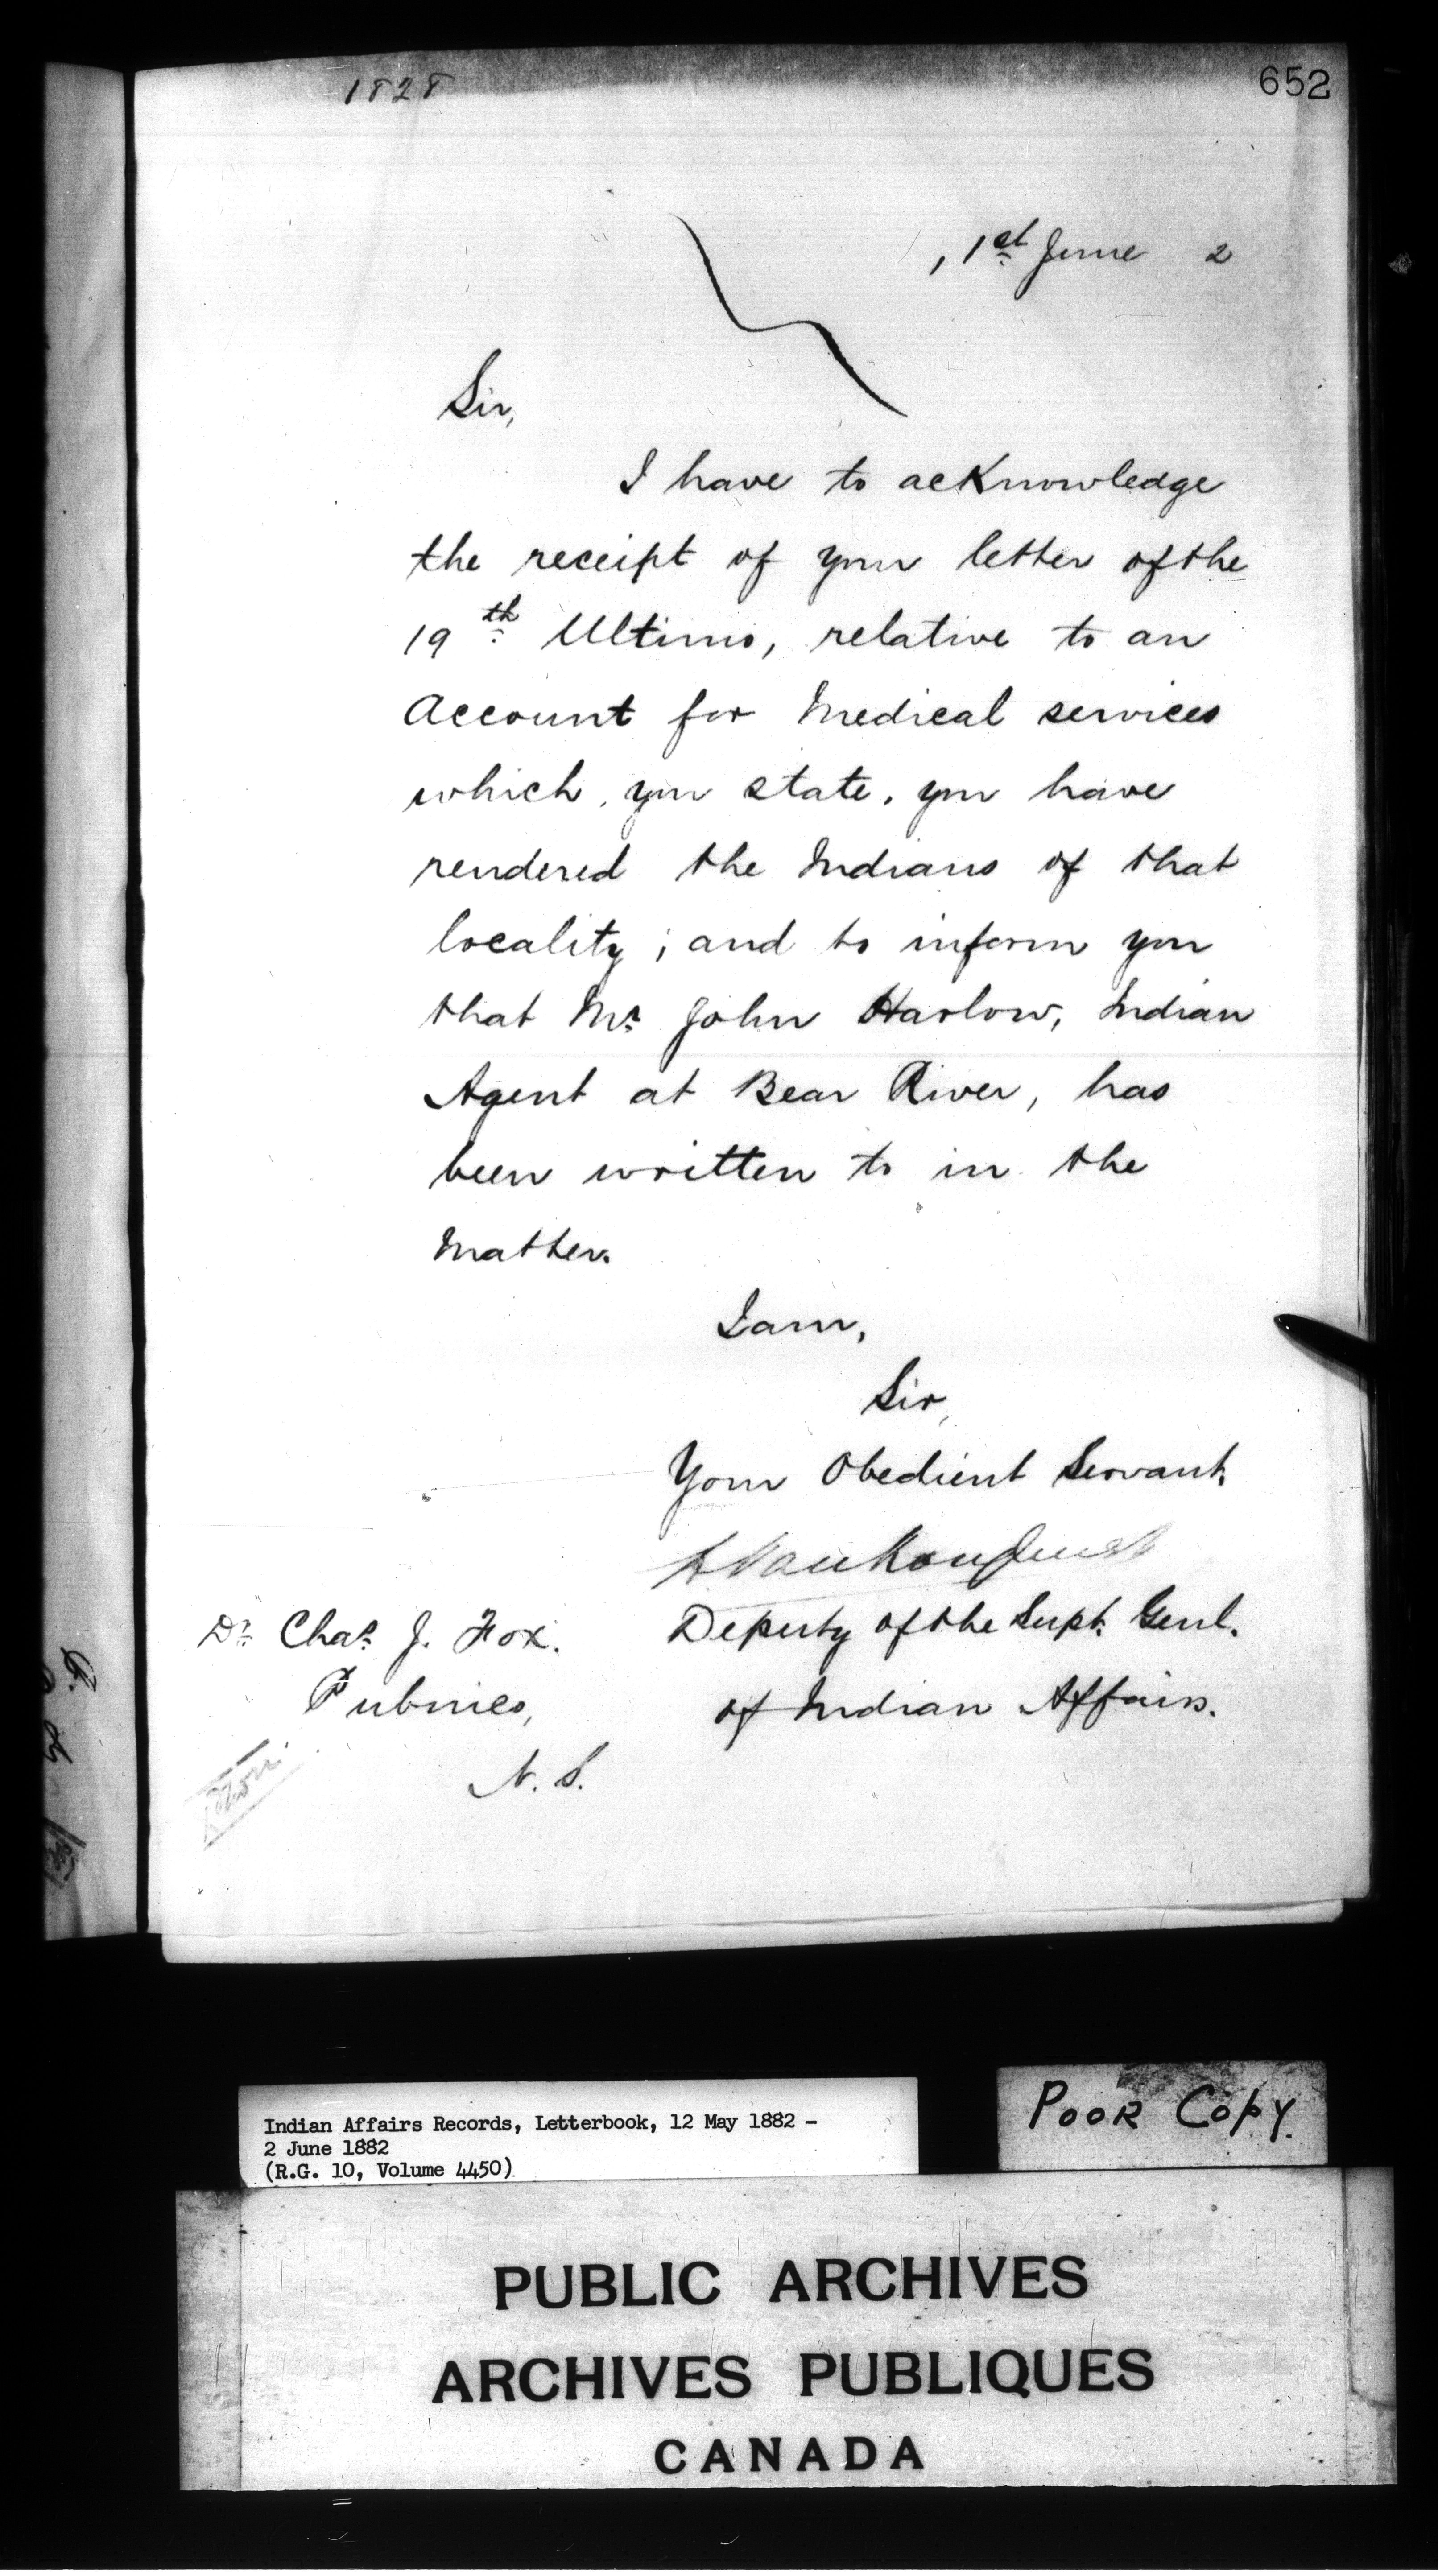 1828
652
, 1st June 2
Sir,
I have to acknowledge
the receipt of your letter of the
19th Ultimo, relative to an
Account for Medical services
which, you state, you have
rendered the Indians of that
locality; and to inform you
that Mr John Harlow, Indian
Agent at Bear River, has
been written to in the
Matter.
I am,
Sir,
Your Obedient Servant,
L VanKoughnet
Dr Chas. J. Fox.
Deputy of the Supt. Genl.
Pubnico,
of Indian Affairs.
N. S.
Indian Affairs Records, Letterbook, 12 May 1882 -
2 June 1882
(R.G. 10, Volume 4450)
POOR COPY.
PUBLIC ARCHIVES
ARCHIVES PUBLIQUES
CANADA